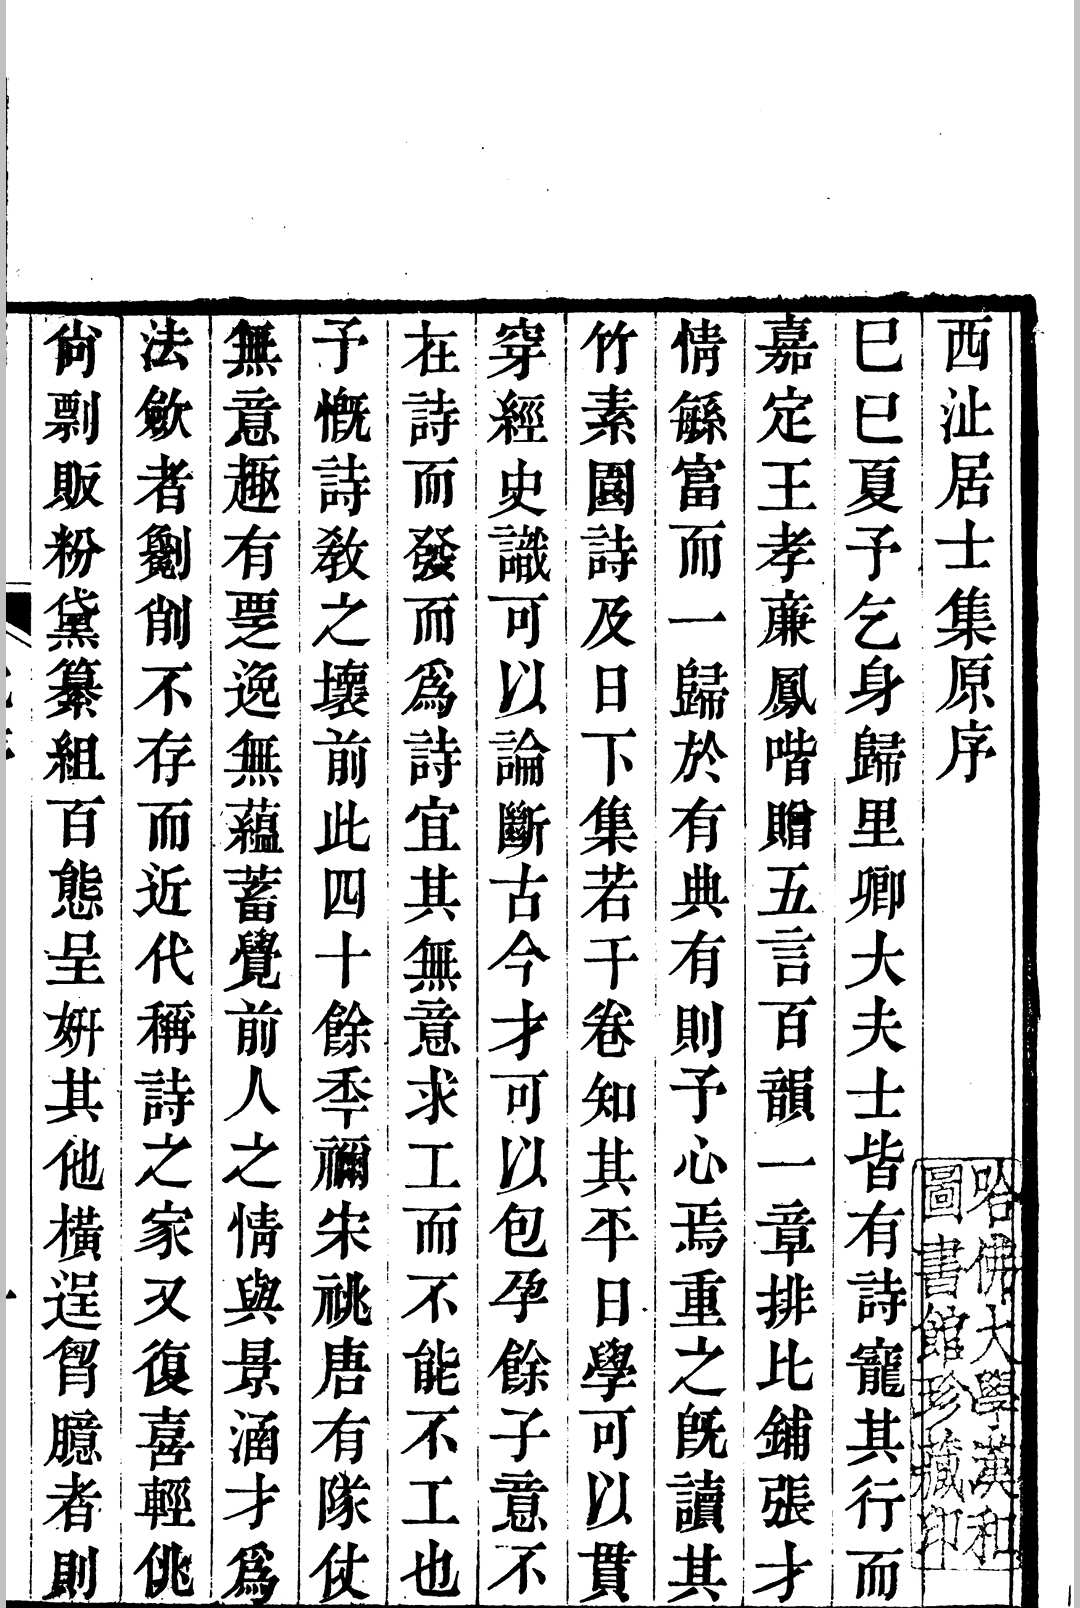 西沚居士集原序
己巳夏予乞身歸里卿大夫士皆有詩寵其行而
嘉定王孝廉鳳喈贈五言百韻一章排比鋪張才
情緐富而一歸於有典有則予心焉重之旣讀其
竹素園詩及日下集若干卷知其平日學可以貫
穿經史識可以論斷古今才可以包孕餘子意不
在詩而發而爲詩宜其無意求工而不能不工也
予慨詩敎之壞前此四十餘秊禰宋祧唐有隊仗
無意趣有㥄逸無蘊蓄覺前人之情與景涵才爲
法歛者劖削不存而近代稱詩之家又復喜輕佻
尙剽販粉黛纂組百態呈姸其他橫逞胷臆者則
哈佛大學漢和
圖書館珍藏印